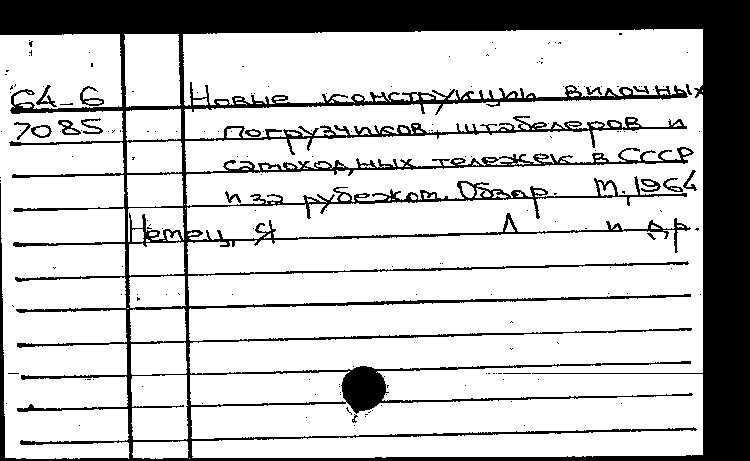 64-6 Новые конструкции вилочных
7085 погрузчиков, штабелеров и
самоходных тележек в СССР
и за рубежом. Обзор. М., 1964
Немец, Я Л и др.